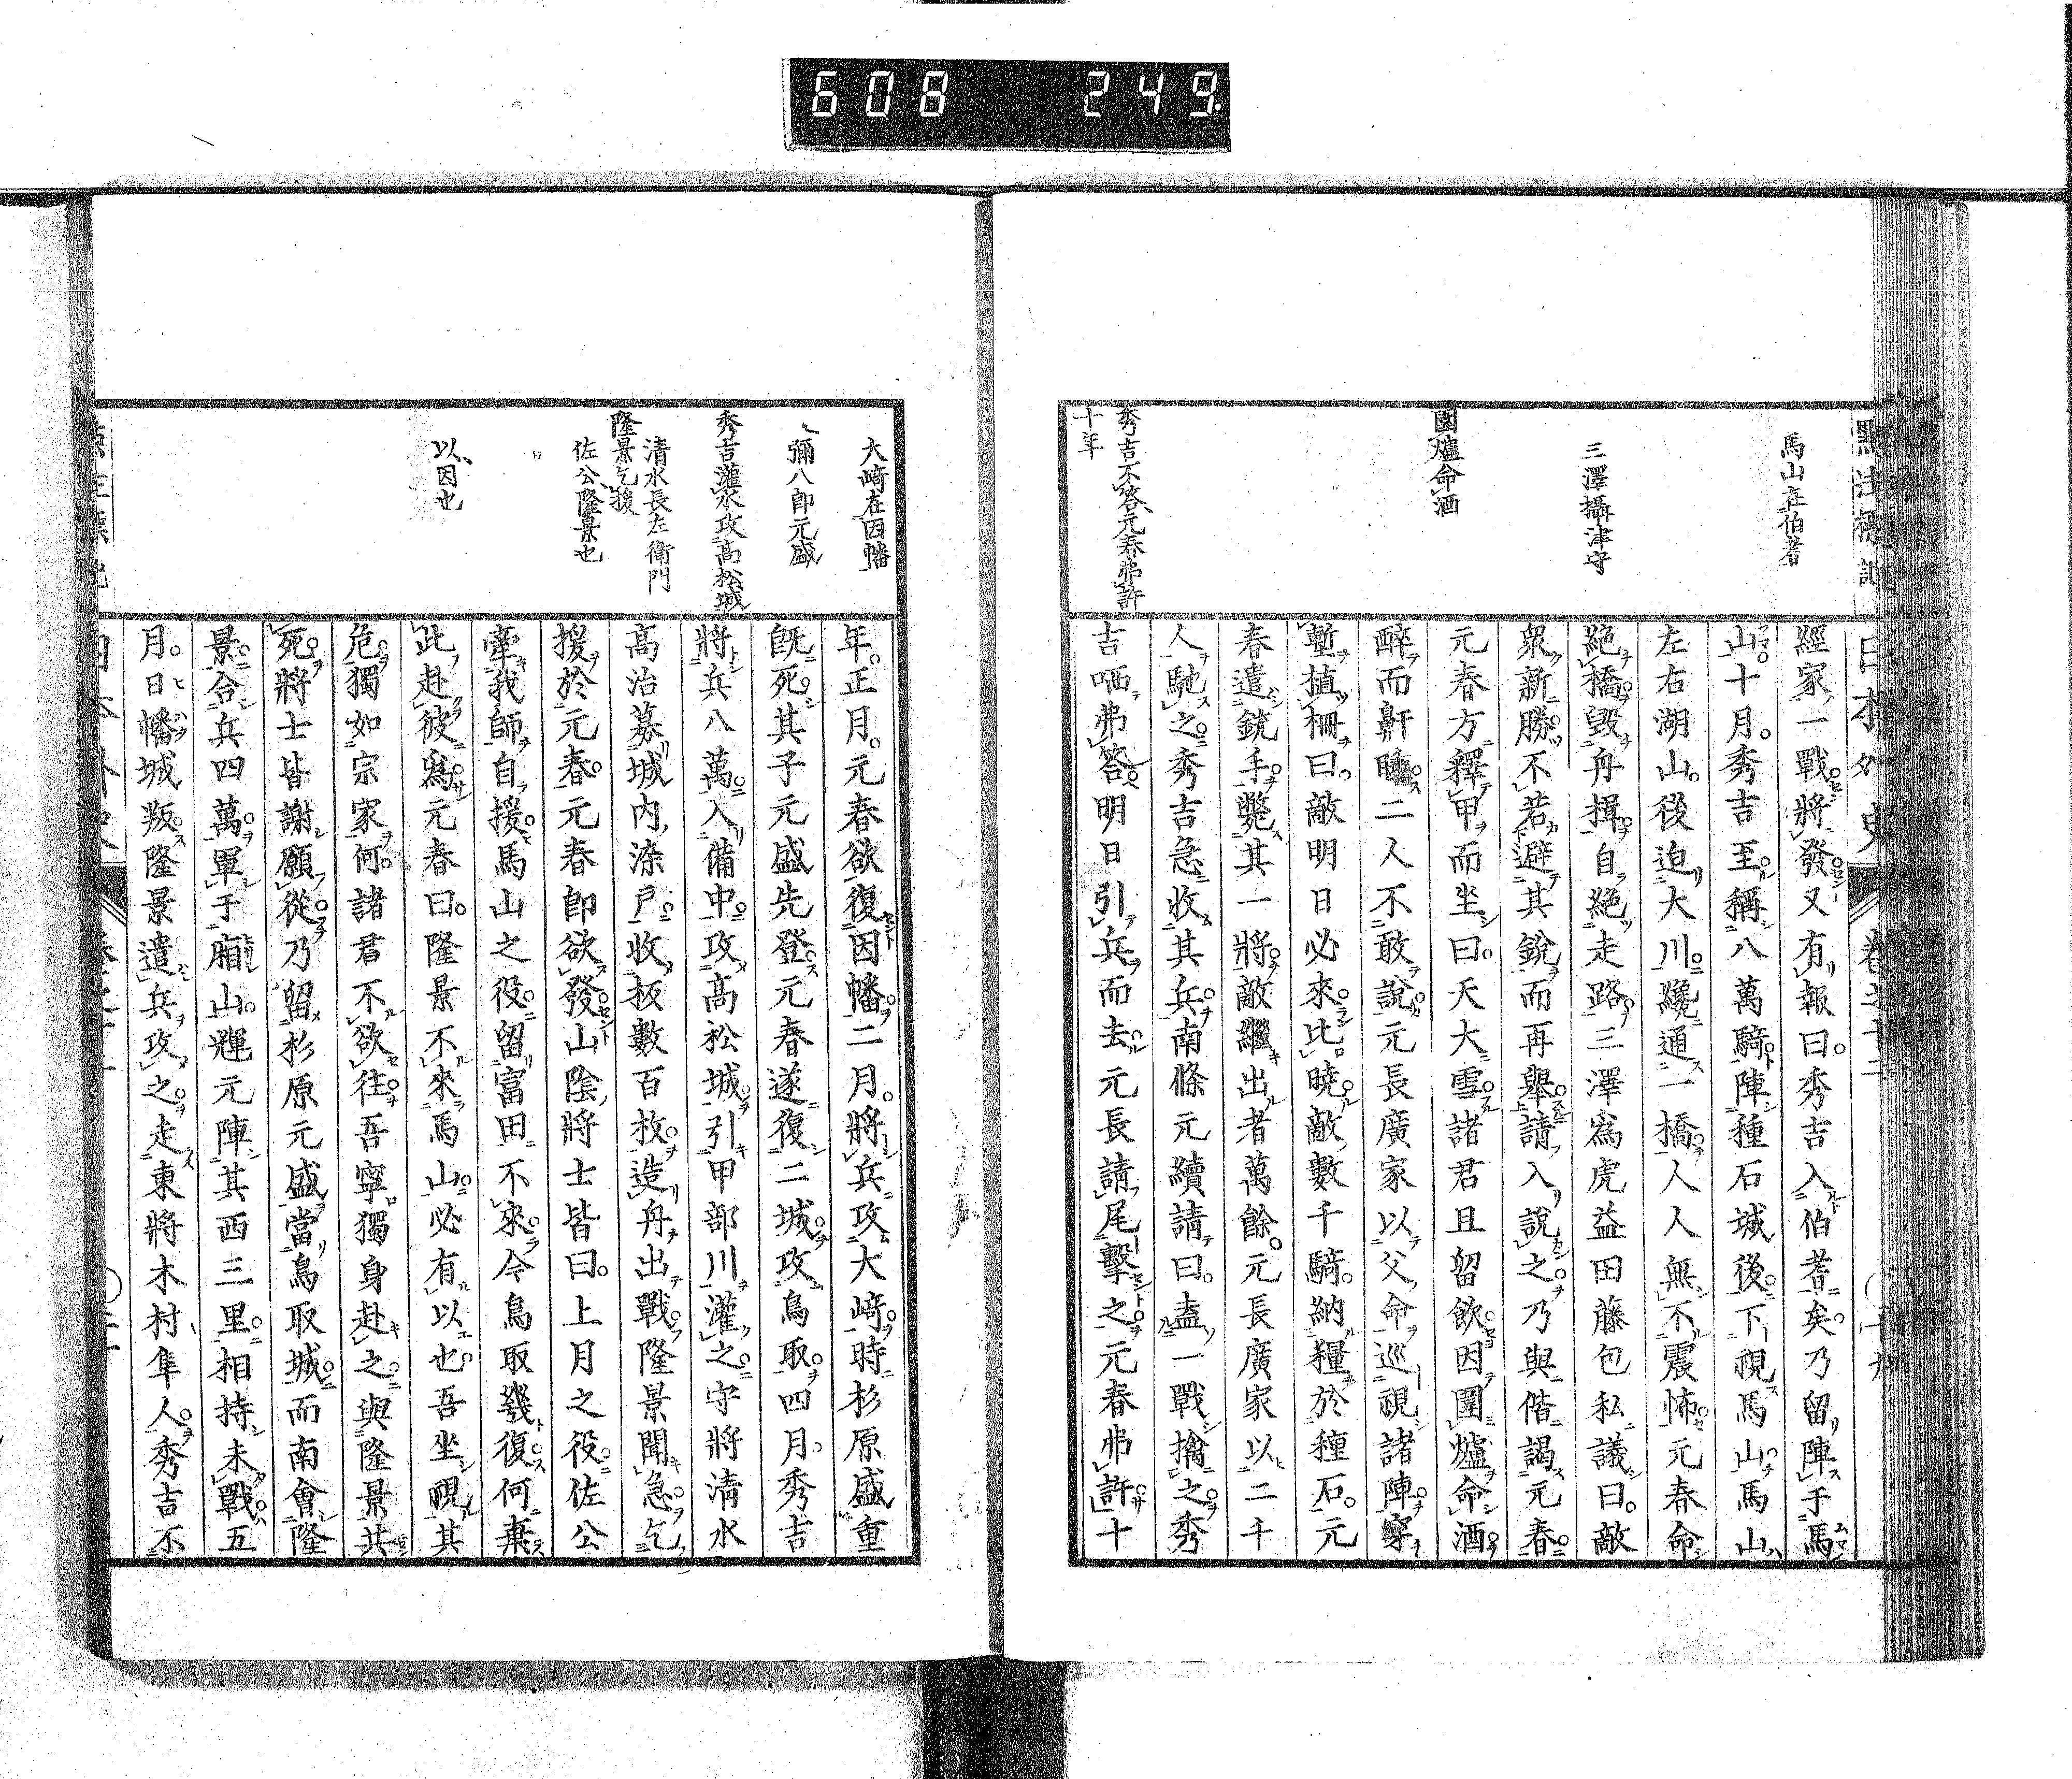 608 249
馬山在伯耆
三澤攝津守
圍爐命酒
秀吉不答元春弗許
十年
經家一戰將發又有報曰秀吉入伯耆矣乃留陣于馬
山十月秀吉至稱八萬騎陣種石城後下視馬山馬山
左右湖山後迫大川纔通一橋人人無不震怖元春命
絕橋毀舟揖自絕走路三澤爲虎益田藤包私議曰敵
衆新勝不若避其銳而再舉請入說之乃與偕謁元春
元春方釋甲而坐曰天大雪諸君且留飮因圍爐命酒
醉而鼾睡二人不敢說元長廣家以父命巡視諸陣穿
塹植柵曰敵明日必來比曉敵數千騎納糧於種石元
春遣銃手斃其一將敵繼出者萬餘元長廣家以二千
人馳之秀吉急收其兵南條元續請曰盍一戰擒之秀
吉哂弗答明日引兵而去元長請尾擊之元春弗許十
大﨑在因幡
彌八郎元盛
秀吉灌水攻高松城
清水長左衛門
隆景乞援
佐公隆景也
以因也
年正月元春欲復因幡二月將兵攻大﨑時杉原盛重
既死其子元盛先登元春遂復二城攻鳥取四月秀吉
將兵八萬入備中攻高松城引甲部川灌之守將清水
高治募城內漆戶收板數百枚造舟出戰隆景聞急乞
援於元春元春卽欲發山陰將士皆曰上月之役佐公
牽我師自援馬山之役留富田不來今鳥取幾復何棄
此赴彼爲元春曰隆景不來馬山必有以也吾坐視其
危獨如宗家何諸君不欲往吾寧獨身赴之與隆景共
死將士皆謝願從乃留杉原元盛當鳥取城而南會隆
景合兵四萬軍于廂山輝元陣其西三里相持未戰五
月日幡城叛隆景遣兵攻之走東將木村隼人秀吉不